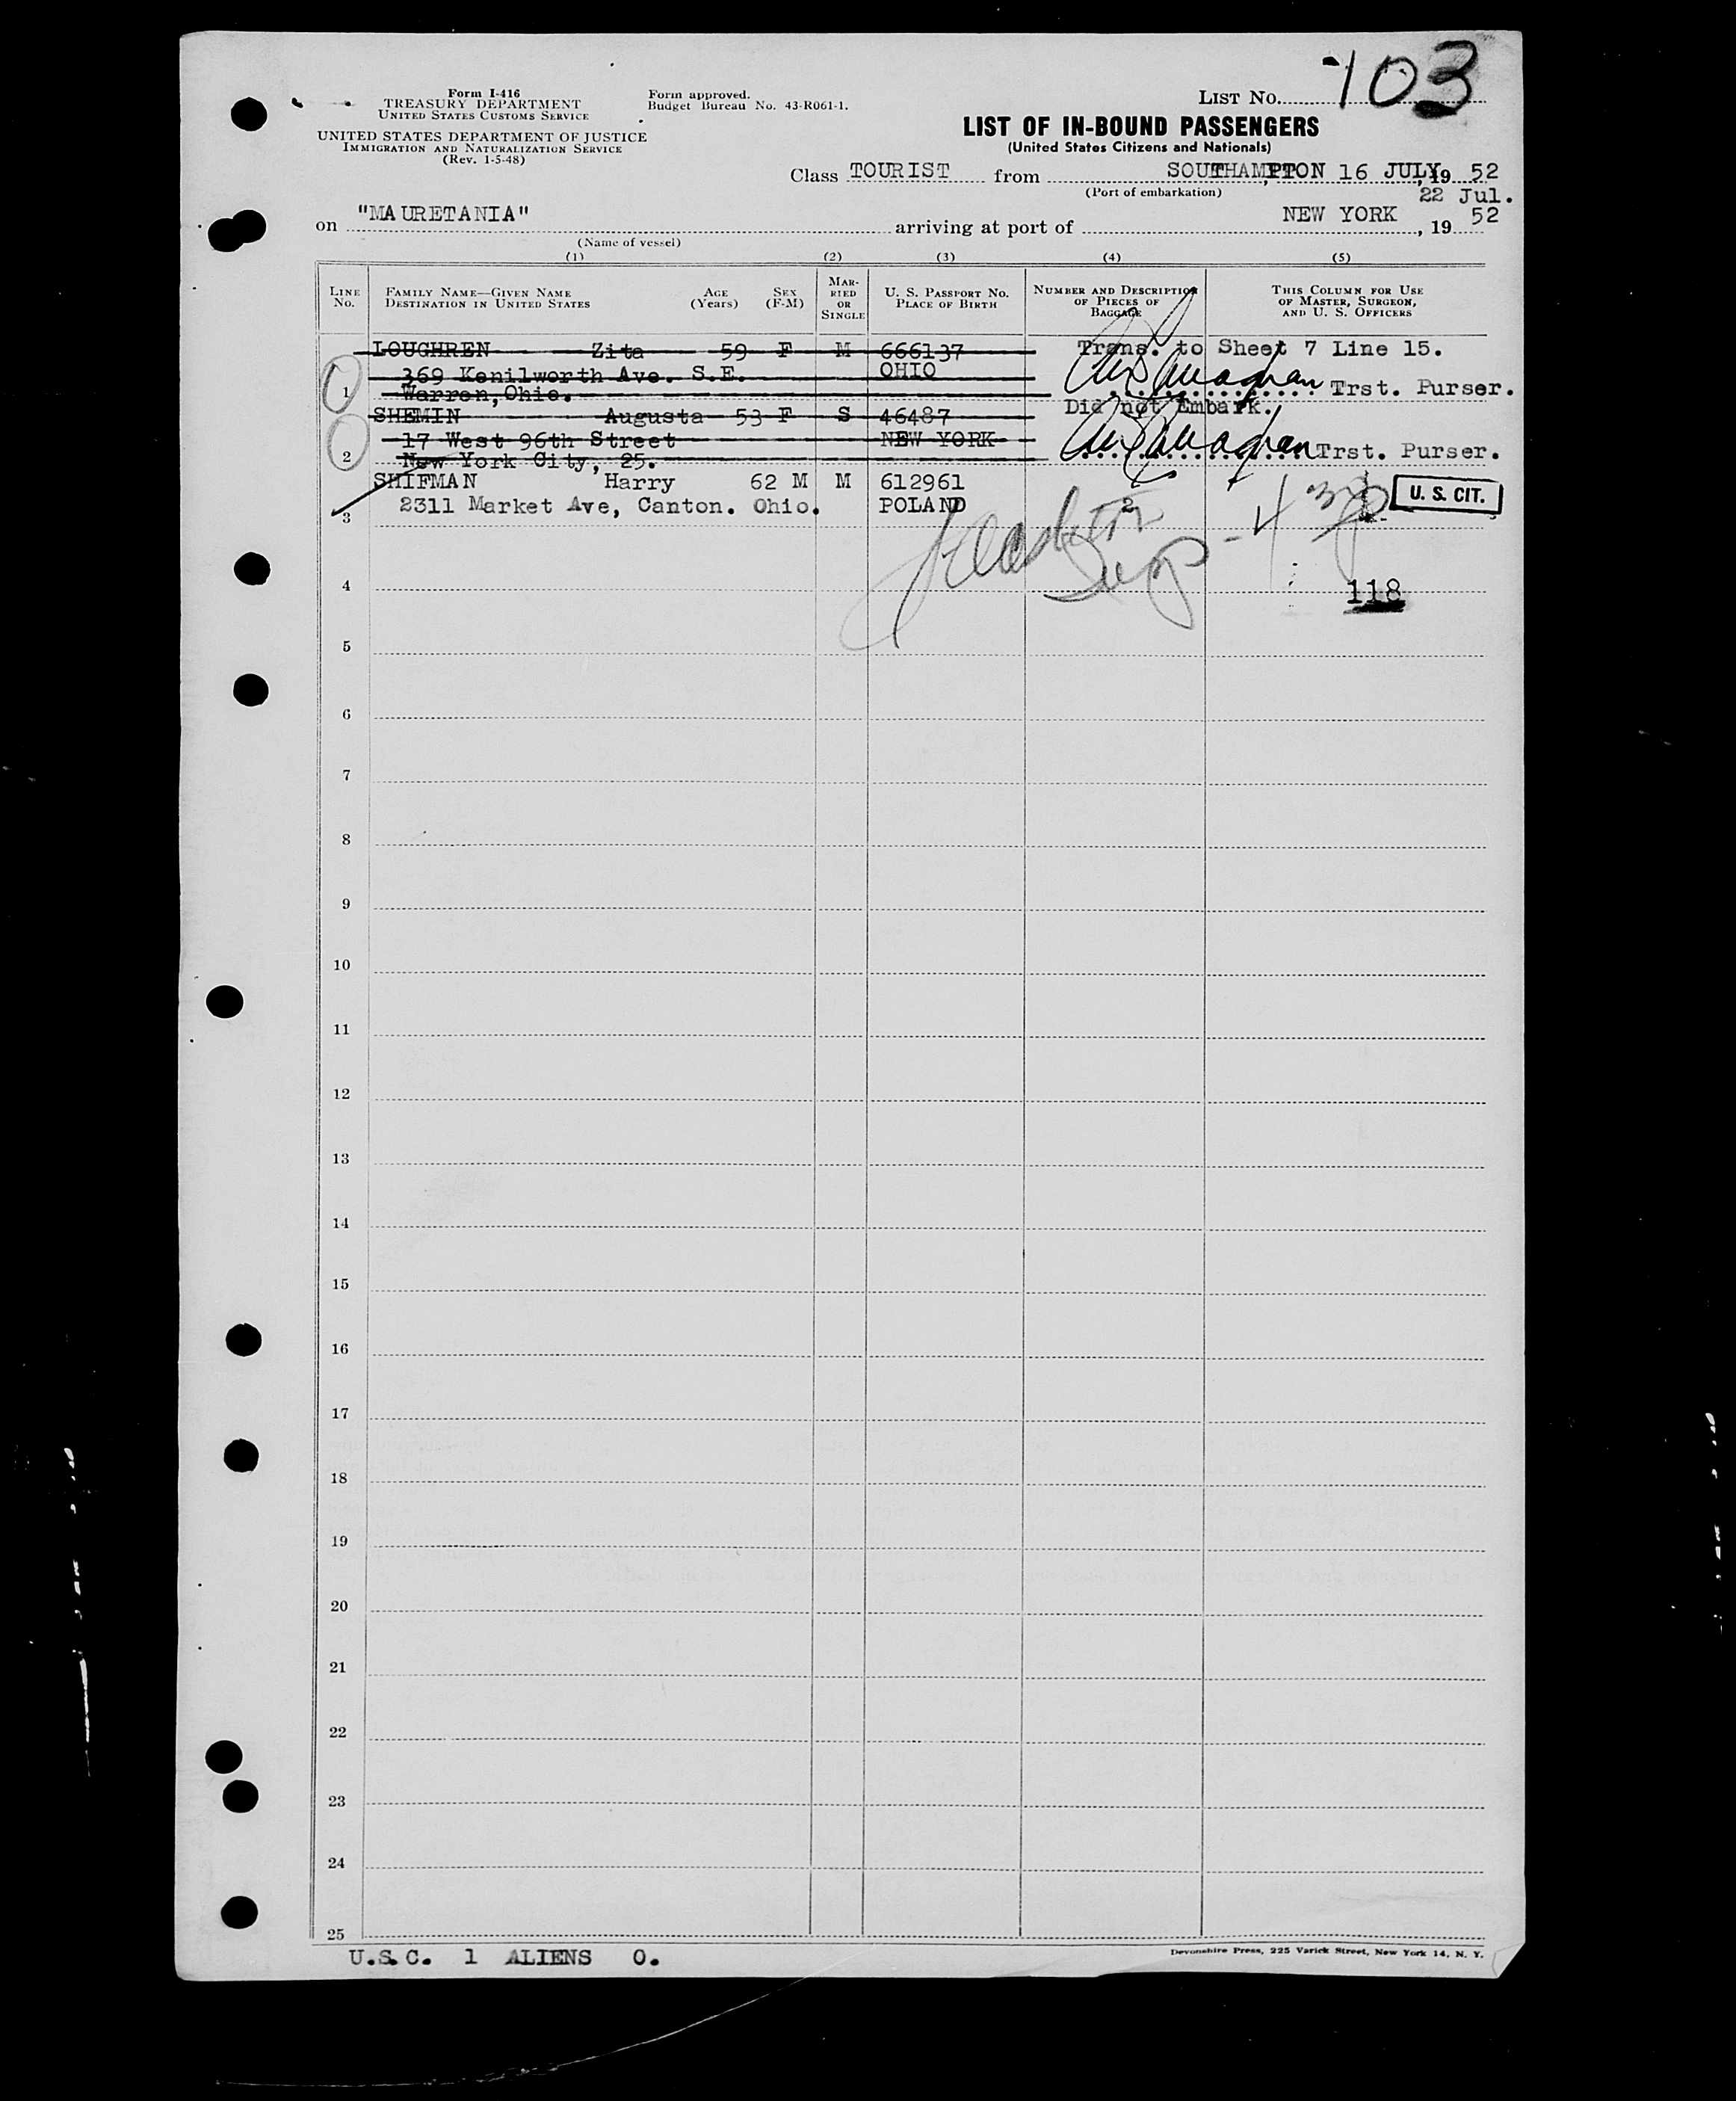 Form I-416
TREASURY DEPARTMENT
UNITED STATES CUSTOMS SERVICE
UNITED STATES DEPARTMENT OF JUSTICE
IMMIGRATION AND NATURALIZATION SERVICE
(Rev. 1-5-48)
Form approved.
Budget Bureau No. 43-R061-1.
LIST No. 103
LIST OF IN-BOUND PASSENGERS
(United States Citizens and Nationals)
Class TOURIST from SOUTHAMPTON 16 JULY, 19 52
(Port of embarkation)
22 Jul.
on "MAURETANIA" arriving at port of NEW YORK, 19 52
(Name of vessel)
(1) (2) (3) (4) (5)
LINE No.
FAMILY NAME—GIVEN NAME
DESTINATION IN UNITED STATES
AGE (Years)
SEX (F-M)
MARRIED OR SINGLE
U. S. PASSPORT NO.
PLACE OF BIRTH
NUMBER AND DESCRIPTION OF PIECES OF BAGGAGE
THIS COLUMN FOR USE OF MASTER, SURGEON, AND U. S. OFFICERS
LOUGHREN Zita 59 F M 666137 Trans. to Sheet 7 Line 15.
369 Kenilworth Ave. S.E. OHIO
1 Warren, Ohio. Trst. Purser.
SHEMIN Augusta 53 F S 46487 Did not Embark.
17 West 96th Street NEW YORK
2 New York City, 25. Trst. Purser.
SHIFMAN Harry 62 M M 612961 U. S. CIT.
3 2311 Market Ave, Canton. Ohio. POLAND 2
4 118
5
6
7
8
9
10
11
12
13
14
15
16
17
18
19
20
21
22
23
24
25
U.S.C. 1 ALIENS 0.
Devonshire Press, 225 Varick Street, New York 14, N. Y.